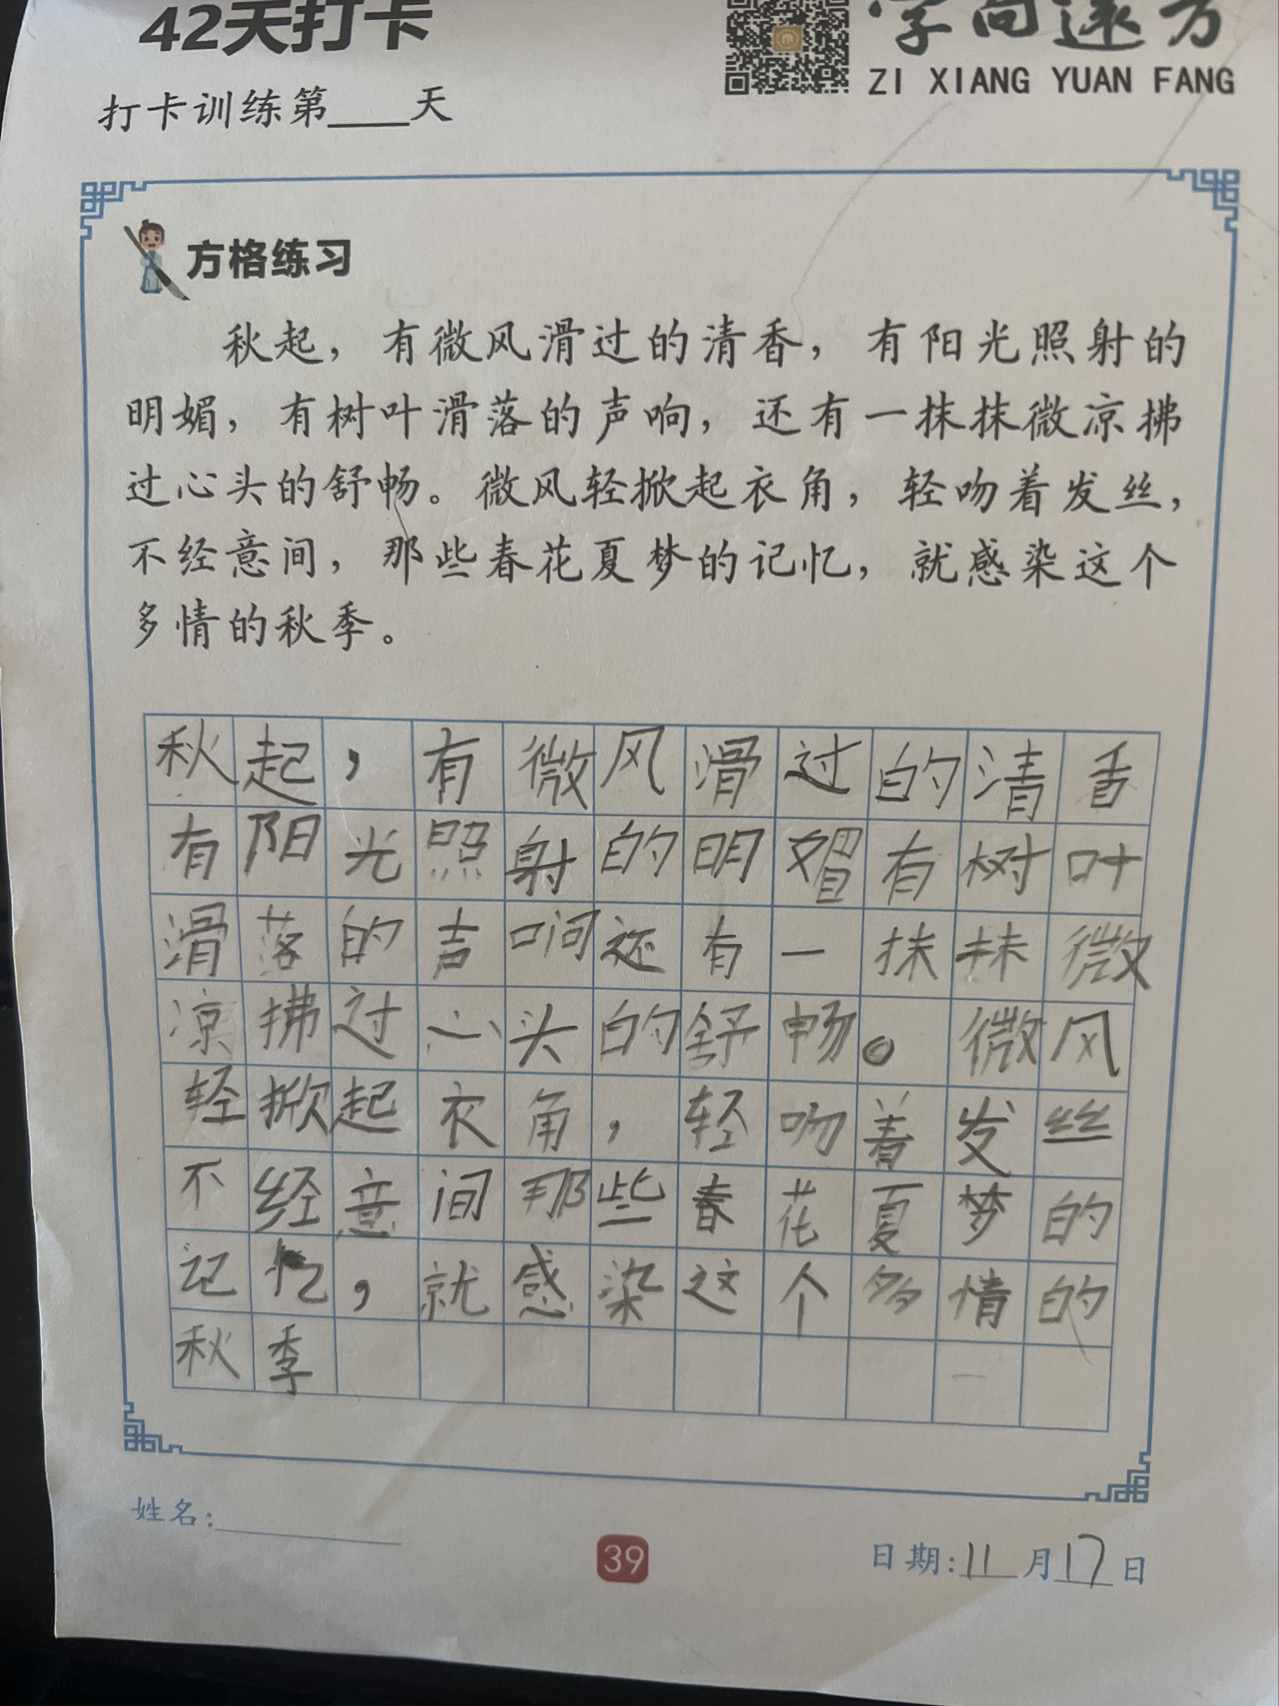 42天打卡
字向远方
ZI XIANG YUAN FANG
打卡训练第____天
方格练习
秋起，有微风滑过的清香，有阳光照射的
明媚，有树叶滑落的声响，还有一抹抹微凉拂
过心头的舒畅。微风轻掀起衣角，轻吻着发丝，
不经意间，那些春花夏梦的记忆，就感染这个
多情的秋季。
秋起，有微风滑过的清香
有阳光照射的明媚有树叶
滑落的声响还有一抹抹微
凉拂过心头的舒畅。微风
轻掀起衣角，轻吻着发丝
不经意间那些春花夏梦的
记忆，就感染这个多情的
秋季
姓名:
39
日期:11月17日